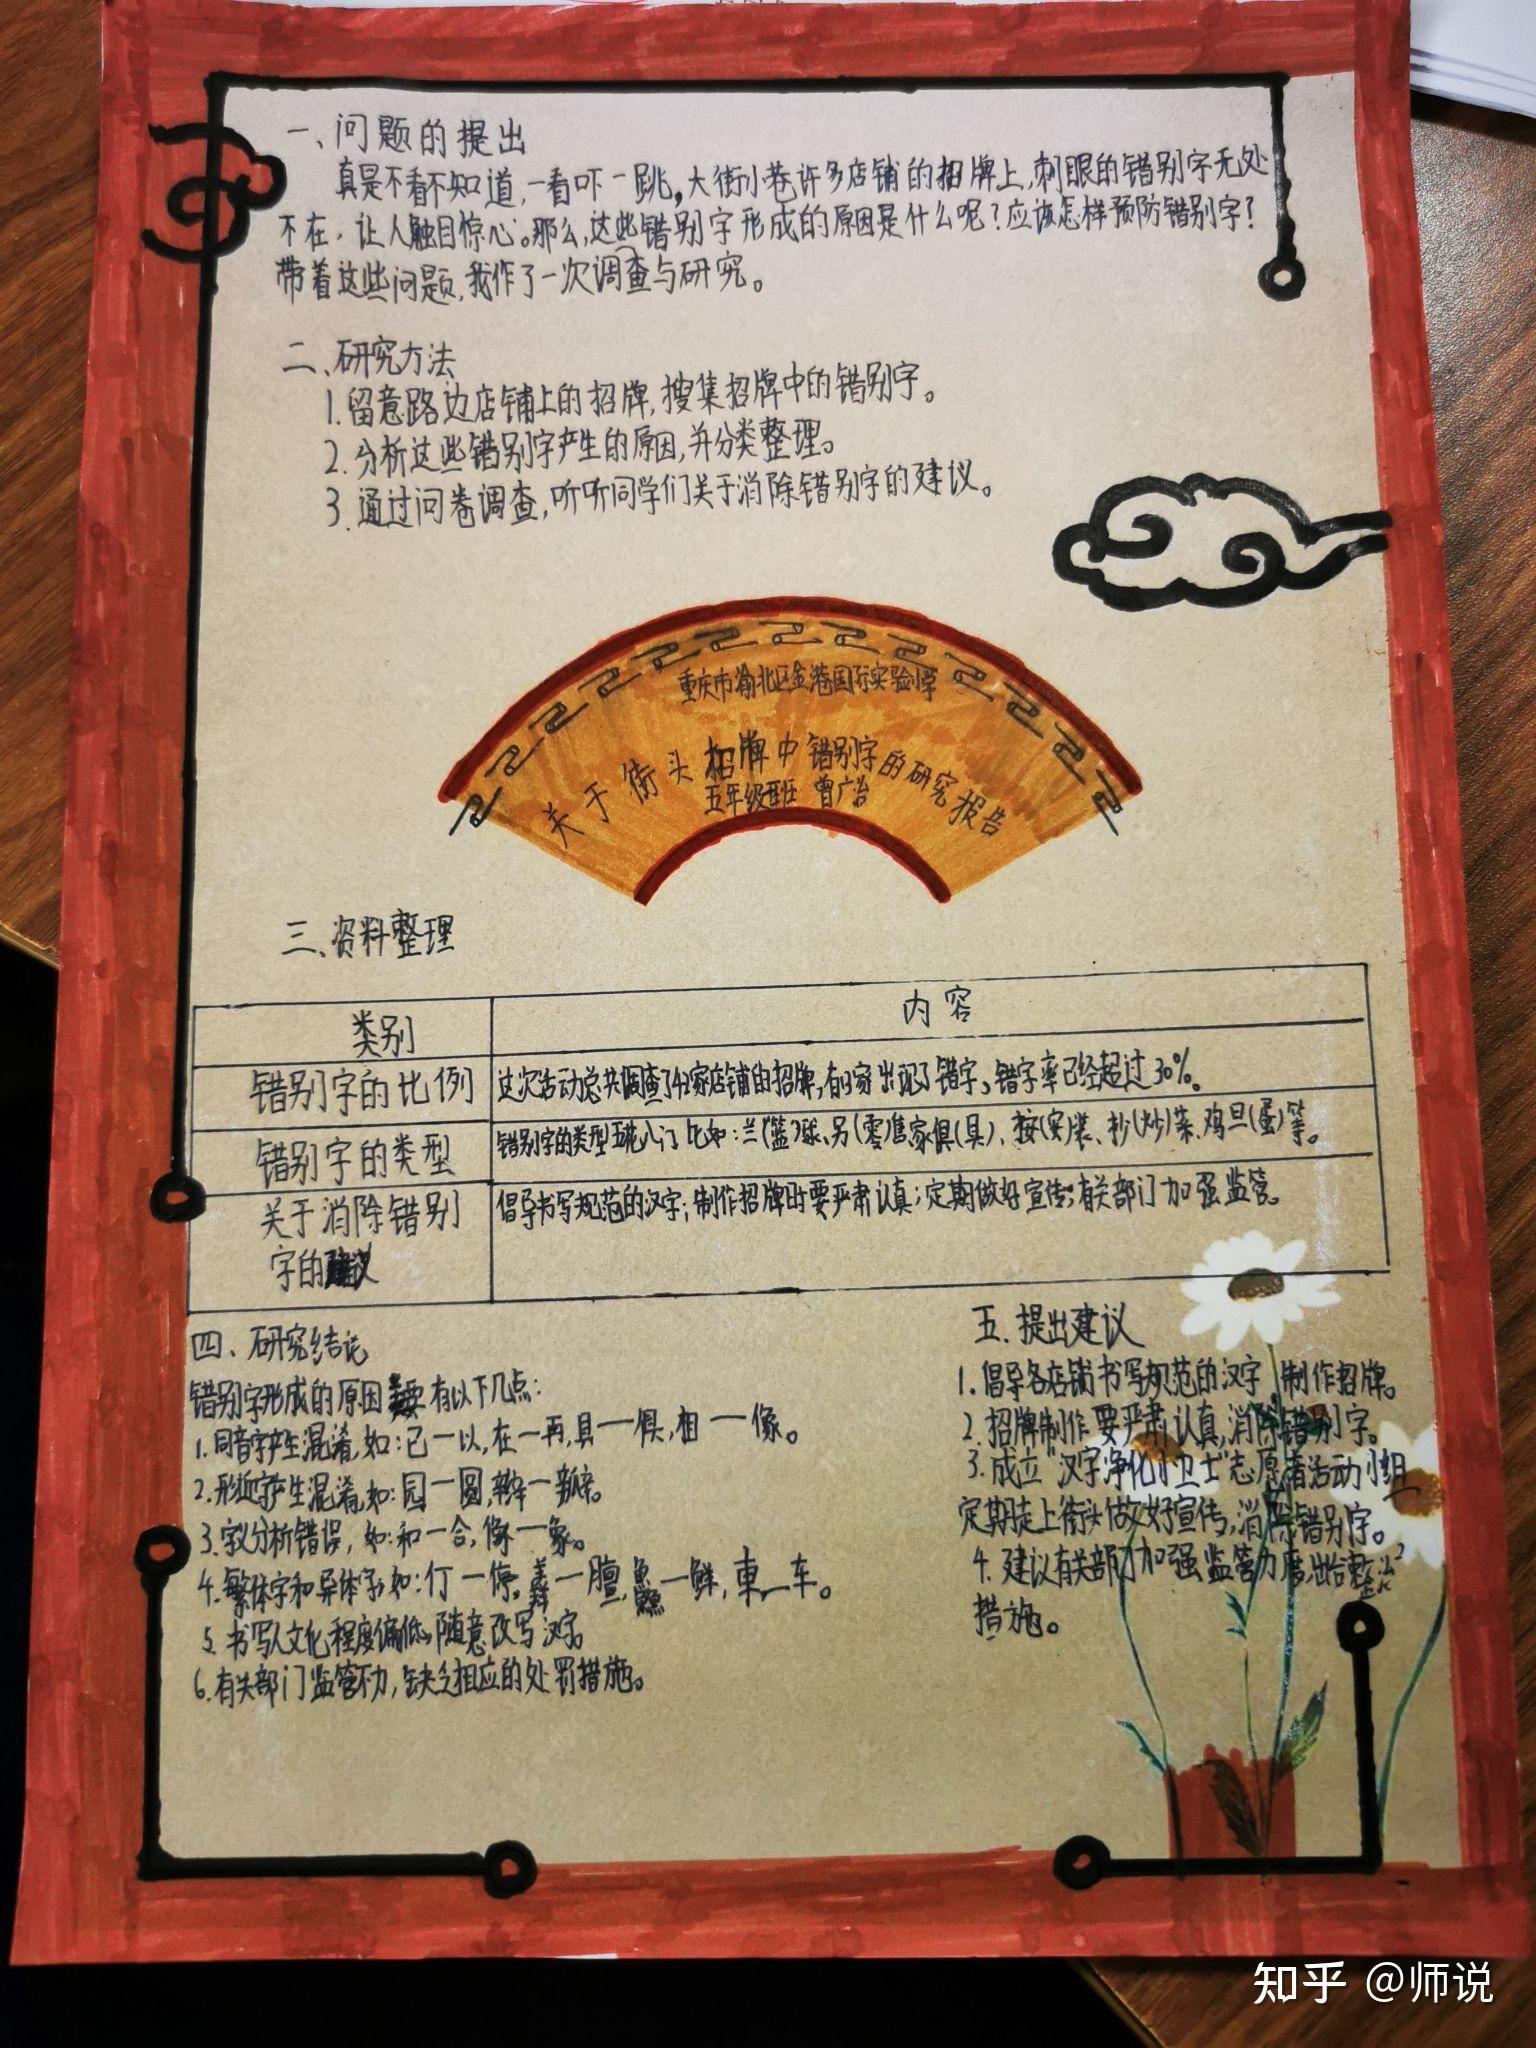 一、问题的提出
真是不看不知道,一看吓一跳,大街小巷许多店铺的招牌上,刺眼的错别字无处
不在,让人触目惊心。那么,这些错别字形成的原因是什么呢?应该怎样预防错别字?
带着这些问题,我作了一次调查与研究。
二、研究方法
1.留意路边店铺上的招牌,搜集招牌中的错别字。
2.分析这些错别字产生的原因,并分类整理。
3.通过问卷调查,听听同学们关于消除错别字的建议。
重庆市渝北区金港国际实验小学
关于街头招牌中错别字的研究报告
五年级班 曾广治
三、资料整理
类别
内容
错别字的比例
这次活动总共调查了42家店铺的招牌,有13家出现了错字。错字率已经超过30%。
错别字的类型
错别字的类型五花八门 比如:兰(篮)球、另(零)售家俱(具)、按(安)装、抄(炒)菜、鸡旦(蛋)等。
关于消除错别
字的建议
倡导书写规范的汉字;制作招牌时要严肃认真;定期做好宣传;有关部门加强监管。
四、研究结论
错别字形成的原因主要有以下几点:
1.同音字产生混淆,如:已一以,在一再,具一俱,相一像。
2.形近字产生混淆,如:园一圆,辨一瓣。
3.字义分析错误,如:和一合,像一象。
4.繁体字和异体字,如:仃一停,一膻,鱻一鲜,東一车。
5.书写人文化程度偏低,随意改写汉字。
6.有关部门监管不力,缺乏相应的处罚措施。
五、提出建议
1.倡导各店铺书写规范的汉字 制作招牌。
2.招牌制作要严肃认真,消除错别字。
3.成立“汉字净化小卫士”志愿者活动小组
定期走上街头做好宣传,消除错别字。
4.建议有关部门加强监管力度,出台整治
措施。
知乎 @师说